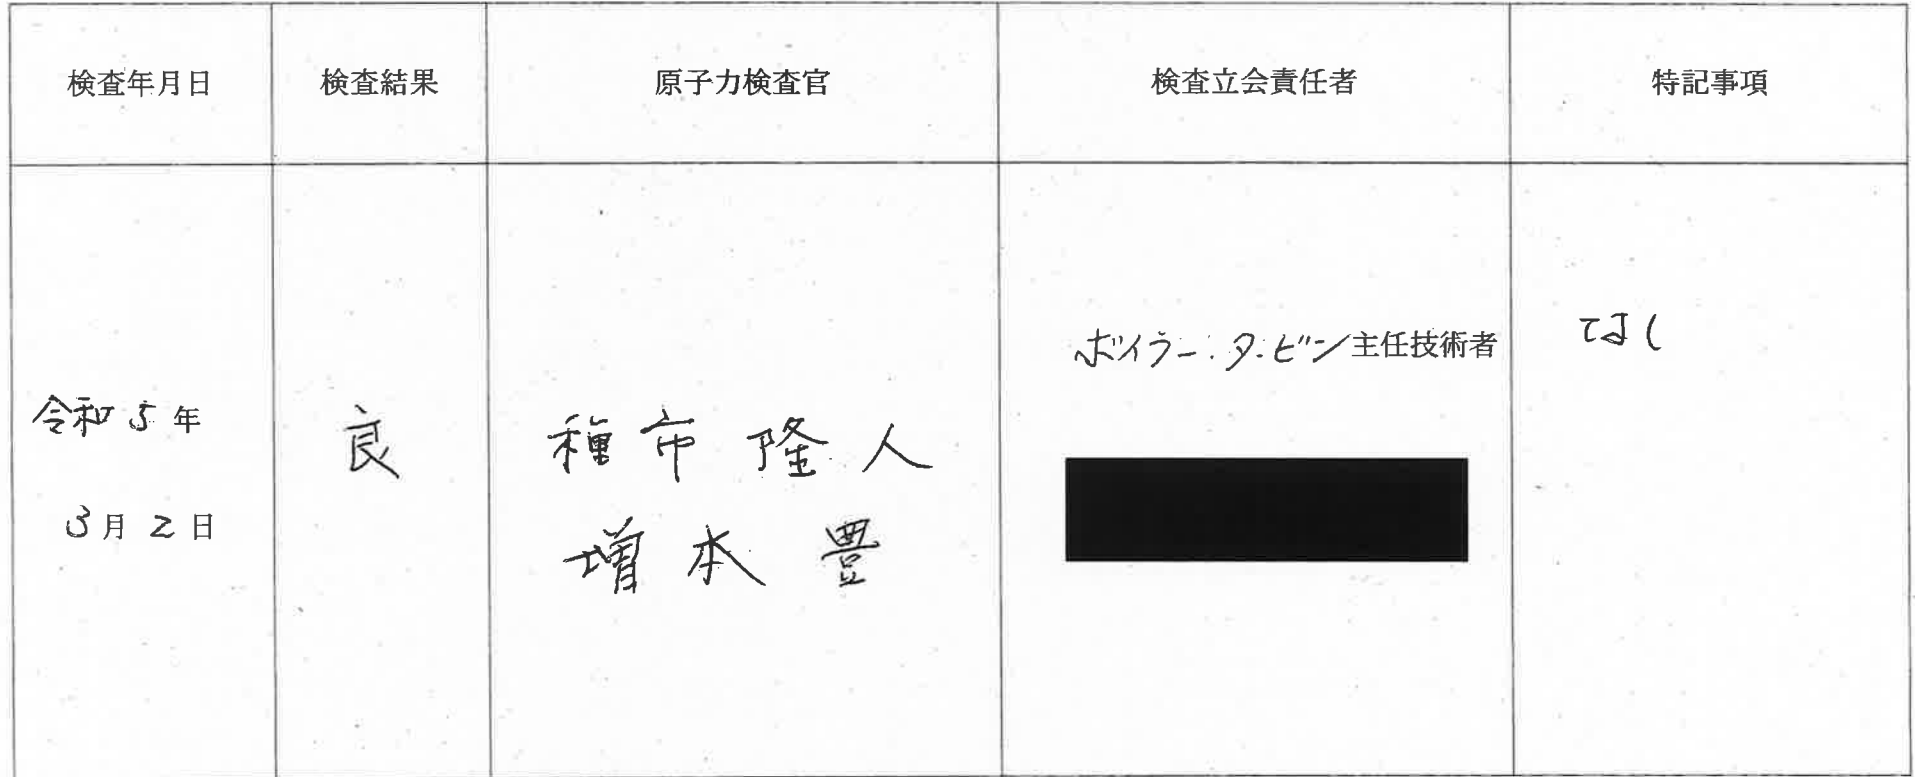 検査年月日
検査結果
原子力検査官
検査立会責任者
特記事項
令和5年
3月2日
良
種市隆人
増本豊
ボイラー・タービン主任技術者
なし